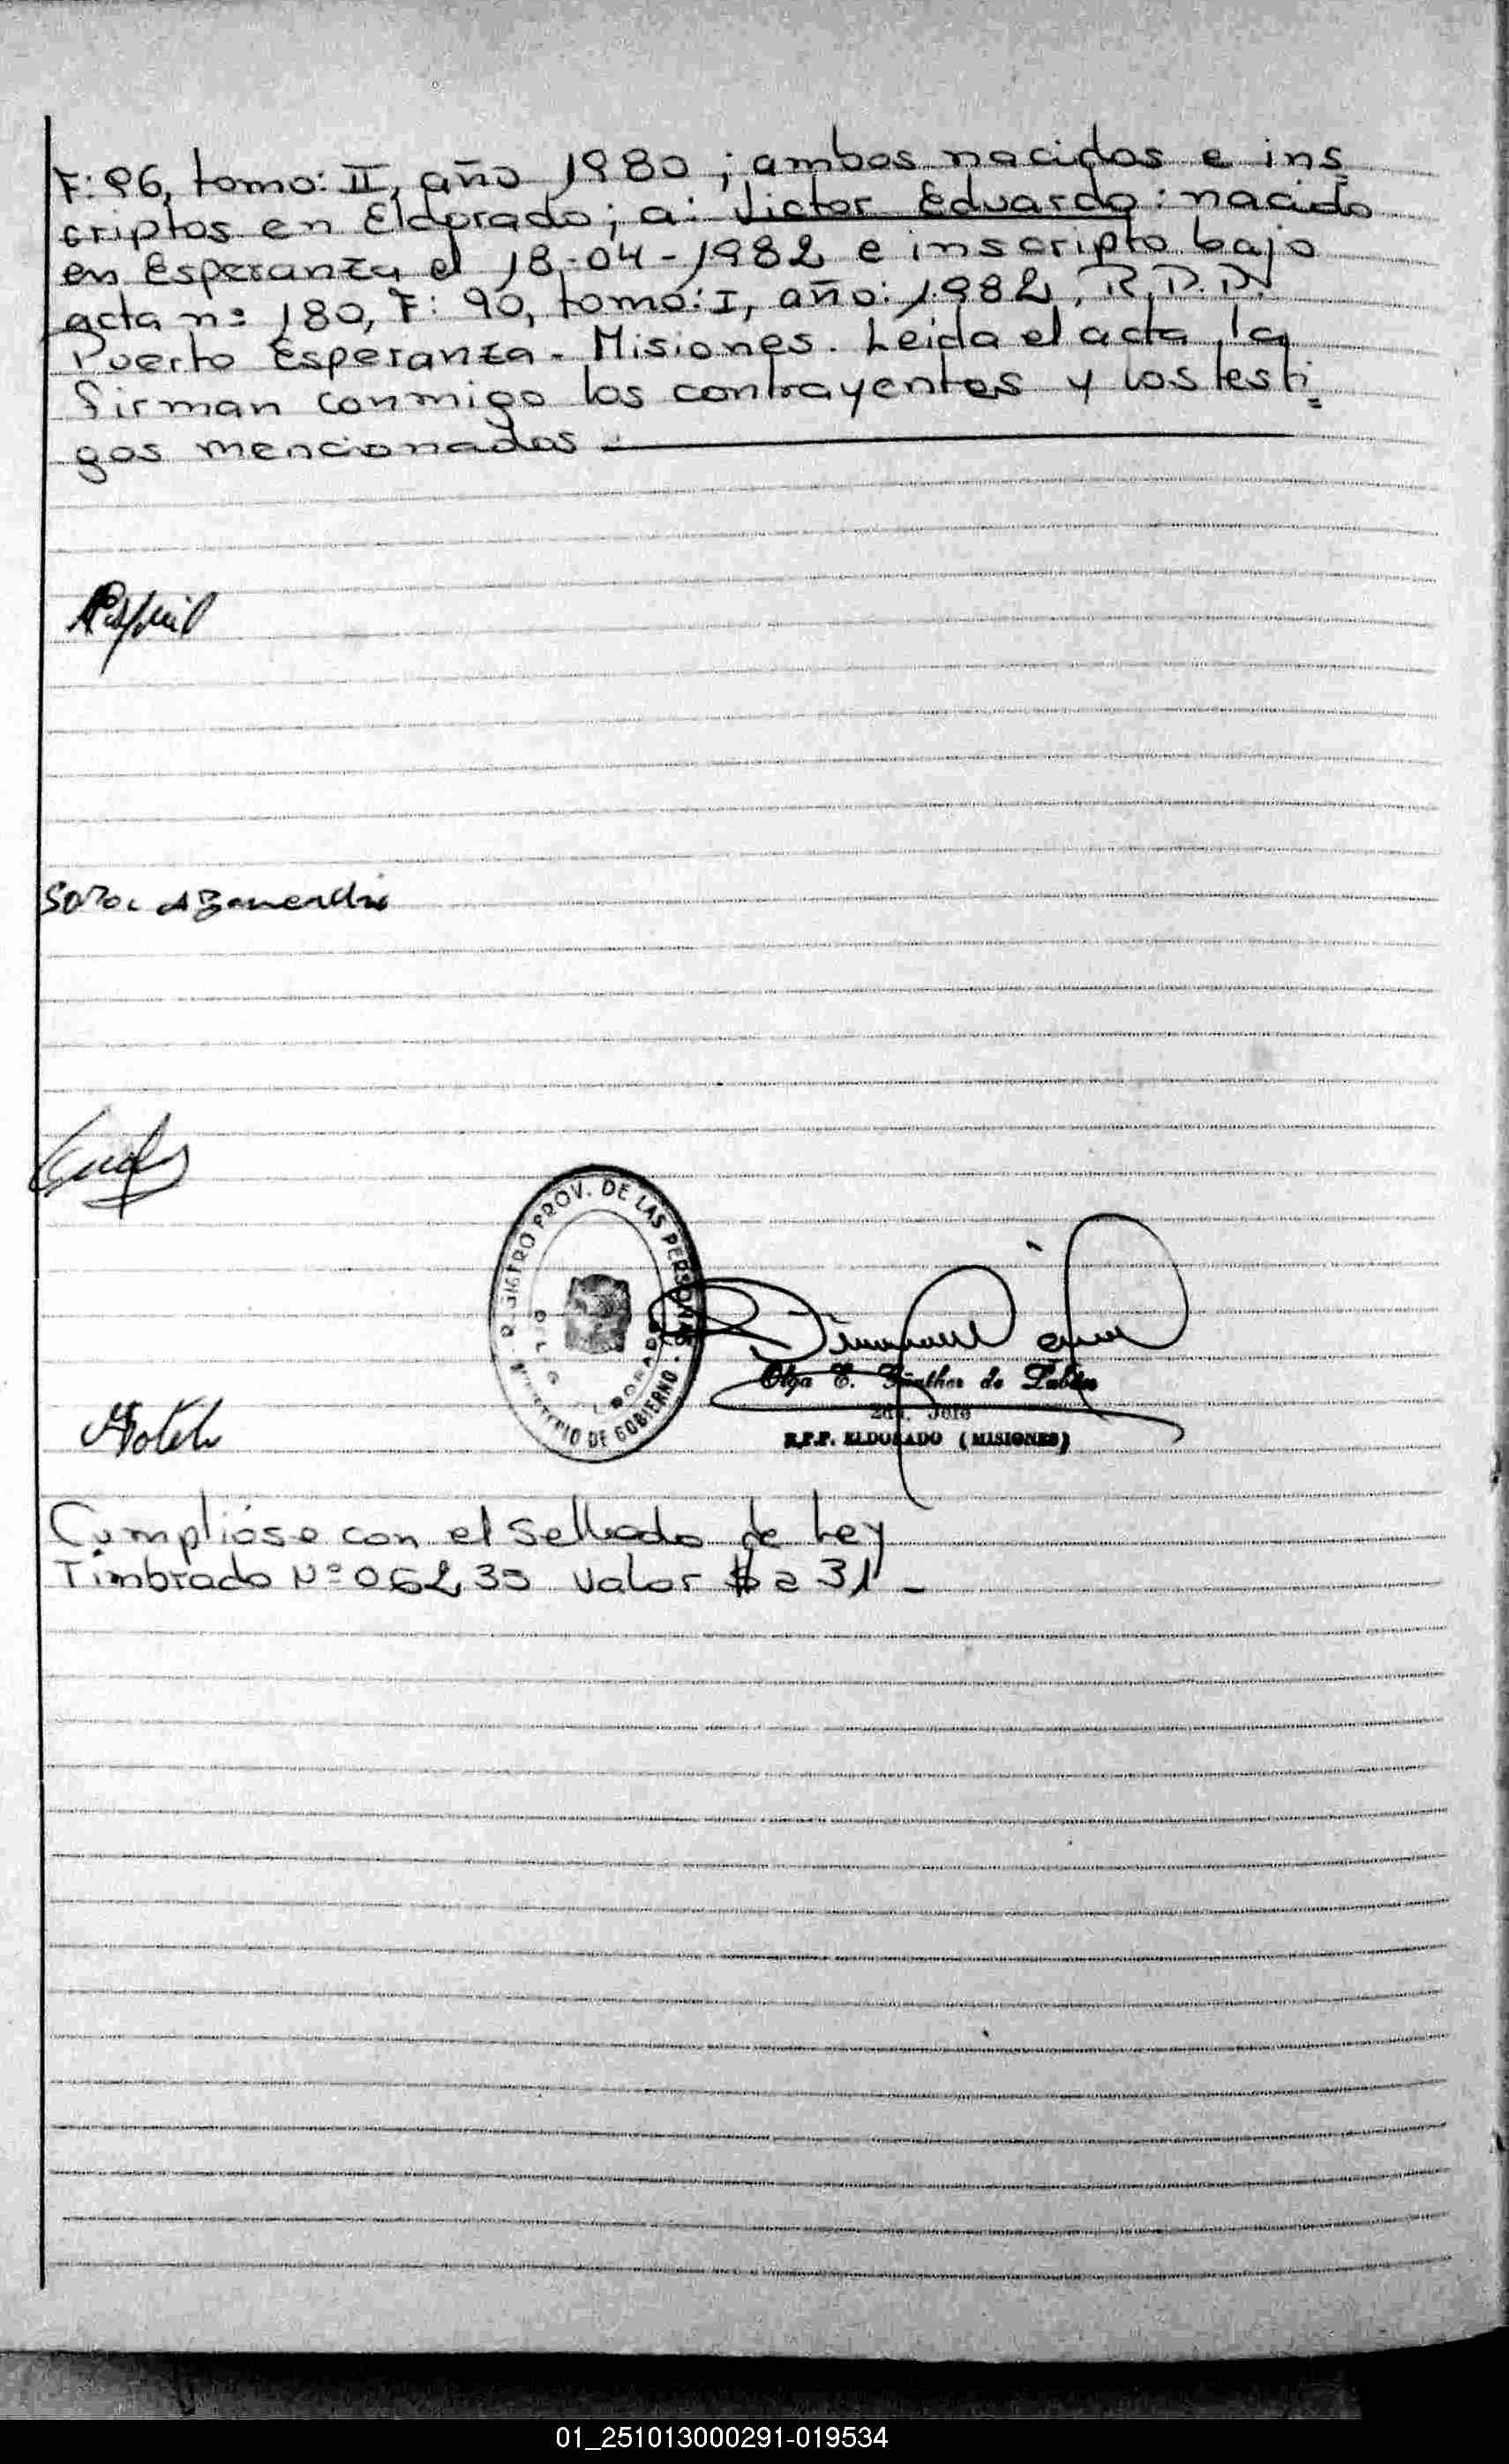 F: 96, tomo: II, año 1980; ambos nacidos e ins
criptos en Eldorado; a: Victor Eduardo: nacido
en Esperanza el 18-04-1982 e inscripto bajo
acta nº 180, F: 90, tomo: I, año: 1982, R.P.P.
Puerto Esperanza - Misiones. Leida el acta, la
firman conmigo los contrayentes y los testi=
gos mencionados.
REGISTRO PROV. DE LAS PERSONAS
MINISTERIO DE GOBIERNO
Olga E. Günther de
2do. Jefe
R.P.P. ELDORADO (MISIONES)
Cumplióse con el sellado de Ley
Timbrado Nº 06235 Valor $a 31 -
01_251013000291-019534